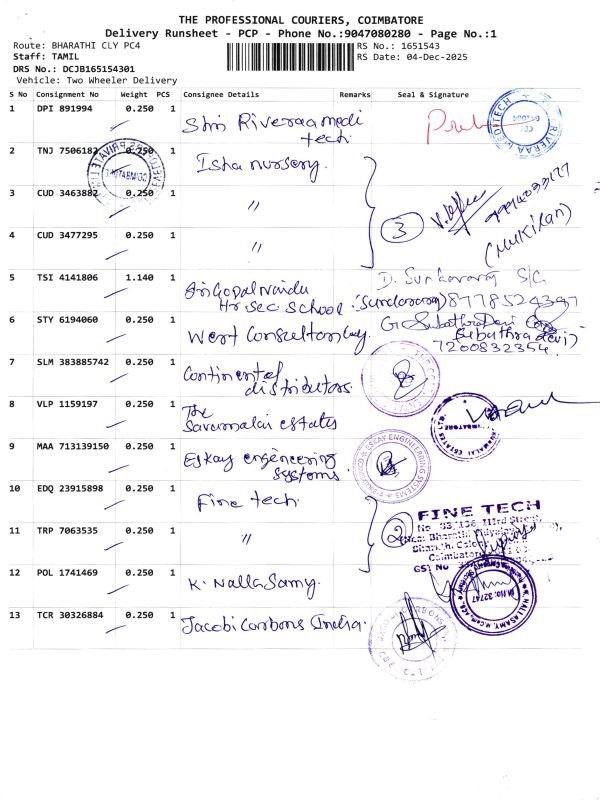 THE PROFESSIONAL COURIERS, COIMBATORE
Delivery Runsheet - PCP - Phone No.:9047080280 - Page No.:1
Route: BHARATHI CLY PC4 RS No.: 1651543
Staff: TAMIL RS Date: 04-Dec-2025
DRS No.: DCJB165154301
Vehicle: Two Wheeler Delivery
S No Consignment No Weight PCS Consignee Details Remarks Seal & Signature
1 DPI 891994 0.250 1 Shri Riveraa medi
tech.
2 TNJ 7506182 0.250 1 Isha nursery.
3 CUD 3463882 0.250 1 "
3
(MUKILAN)
4 CUD 3477295 0.250 1 "
5 TSI 4141806 1.140 1 Sri Gopal naidu
Hr. sec school.
8778524397
6 STY 6194060 0.250 1 West Consultancy.
7200832354
7 SLM 383885742 0.250 1 Continental
distributors.
8 VLP 1159197 0.250 1 The
Savamalai estates
9 MAA 713139150 0.250 1 Eskay engineering
systems.
10 EDQ 23915898 0.250 1 Fine tech.
2
FINE TECH
11 TRP 7063535 0.250 1 "
12 POL 1741469 0.250 1 K. Nalla Samy.
13 TCR 30326884 0.250 1 Jacobi Carbons India.